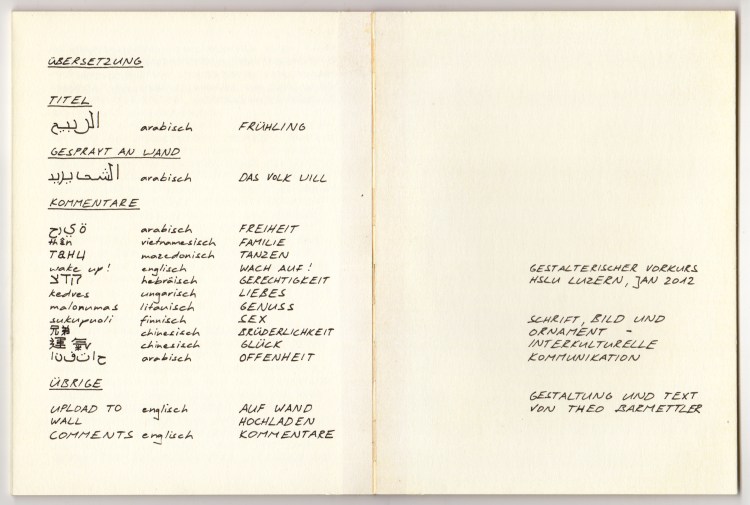 ÜBERSETZUNG
TITEL
الربيع arabisch FRÜHLING
GESPRAYT AN WAND
arabisch DAS VOLK WILL
KOMMENTARE
arabisch FREIHEIT
thân vietnamesisch FAMILIE
mazedonisch TANZEN
wake up! englisch WACH AUF!
צדק hebräisch GERECHTIGKEIT
kedves ungarisch LIEBES
malonumas litauisch GENUSS
sukupuoli finnisch SEX
兄弟 chinesisch BRÜDERLICHKEIT
運氣 chinesisch GLÜCK
arabisch OFFENHEIT
ÜBRIGE
UPLOAD TO englisch AUF WAND
WALL HOCHLADEN
COMMENTS englisch KOMMENTARE
GESTALTERISCHER VORKURS
HSLU LUZERN, JAN 2012
SCHRIFT, BILD UND
ORNAMENT –
INTERKULTURELLE
KOMMUNIKATION
GESTALTUNG UND TEXT
VON THEO BARMETTLER